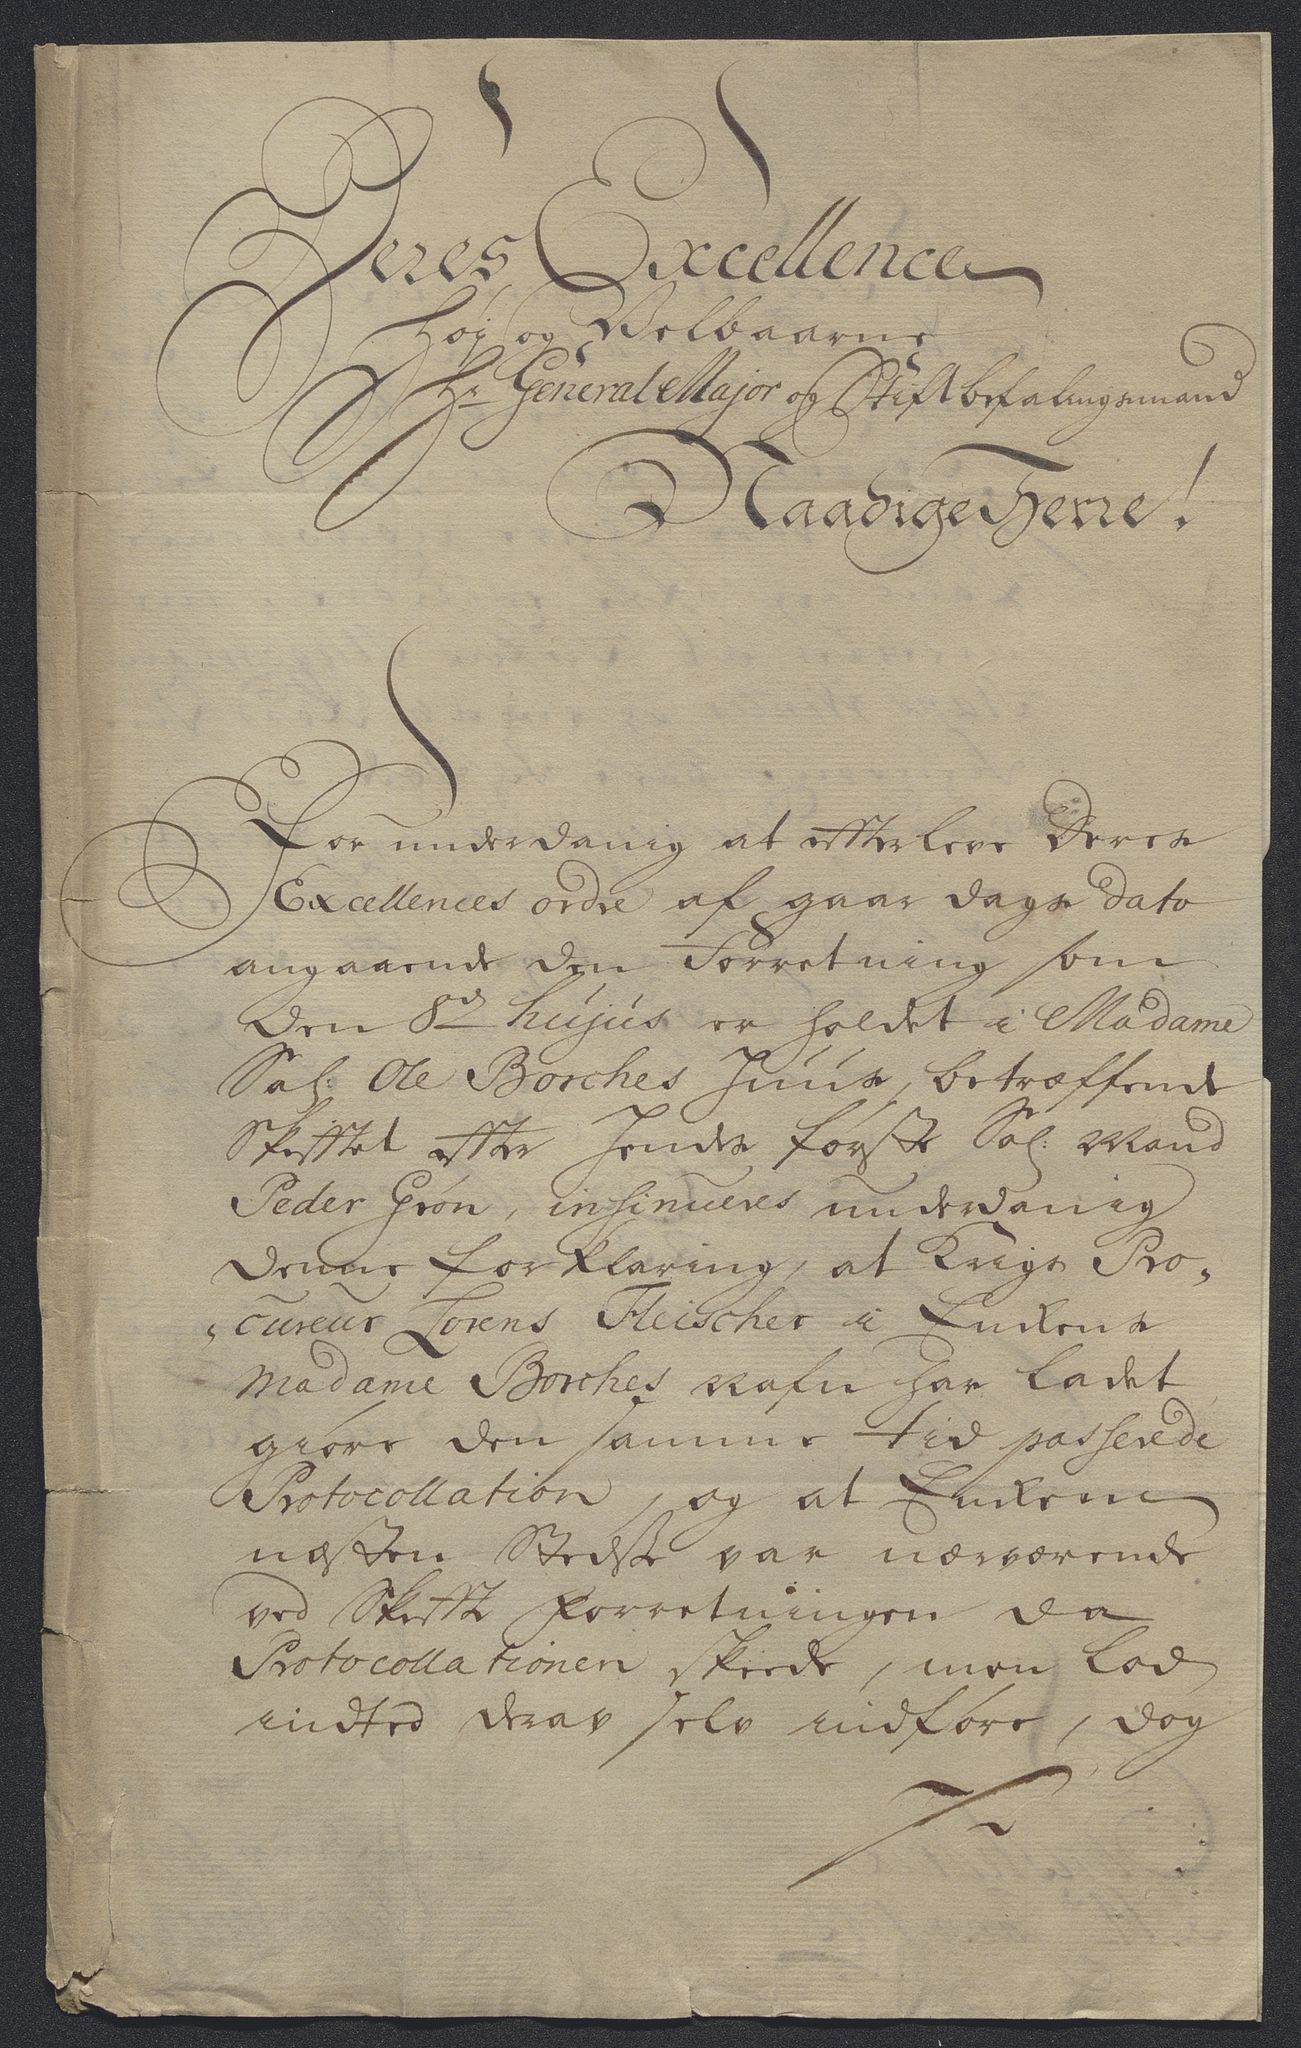 Deres Excellence
Høj og Velbaarne
Hr General Major og Stiftbefalingsmand
Naadige Herre!
For underdanig at efterleve Deres
Excellences ordre af gaar dags dato
angaaende den Forretning som
den 8de hujus er holdet i Madame
Sal: Ole Borches Huus, betræffende
Skifftet effter hendes første Sal: Mand
Peder Grøn, insinueres underdanig
denne forklaring, at Krigs Pro-
-cureur Lorens Fleischer i Enkens
Madame Borches Nafn har ladet
giøre den samme tid passerede
Protocollation, og at Enken
næsten stedse var nærværende
ved Skiffte Forretningen da
Protocollationen skeede, men lod
indted derav selv indføre, dog